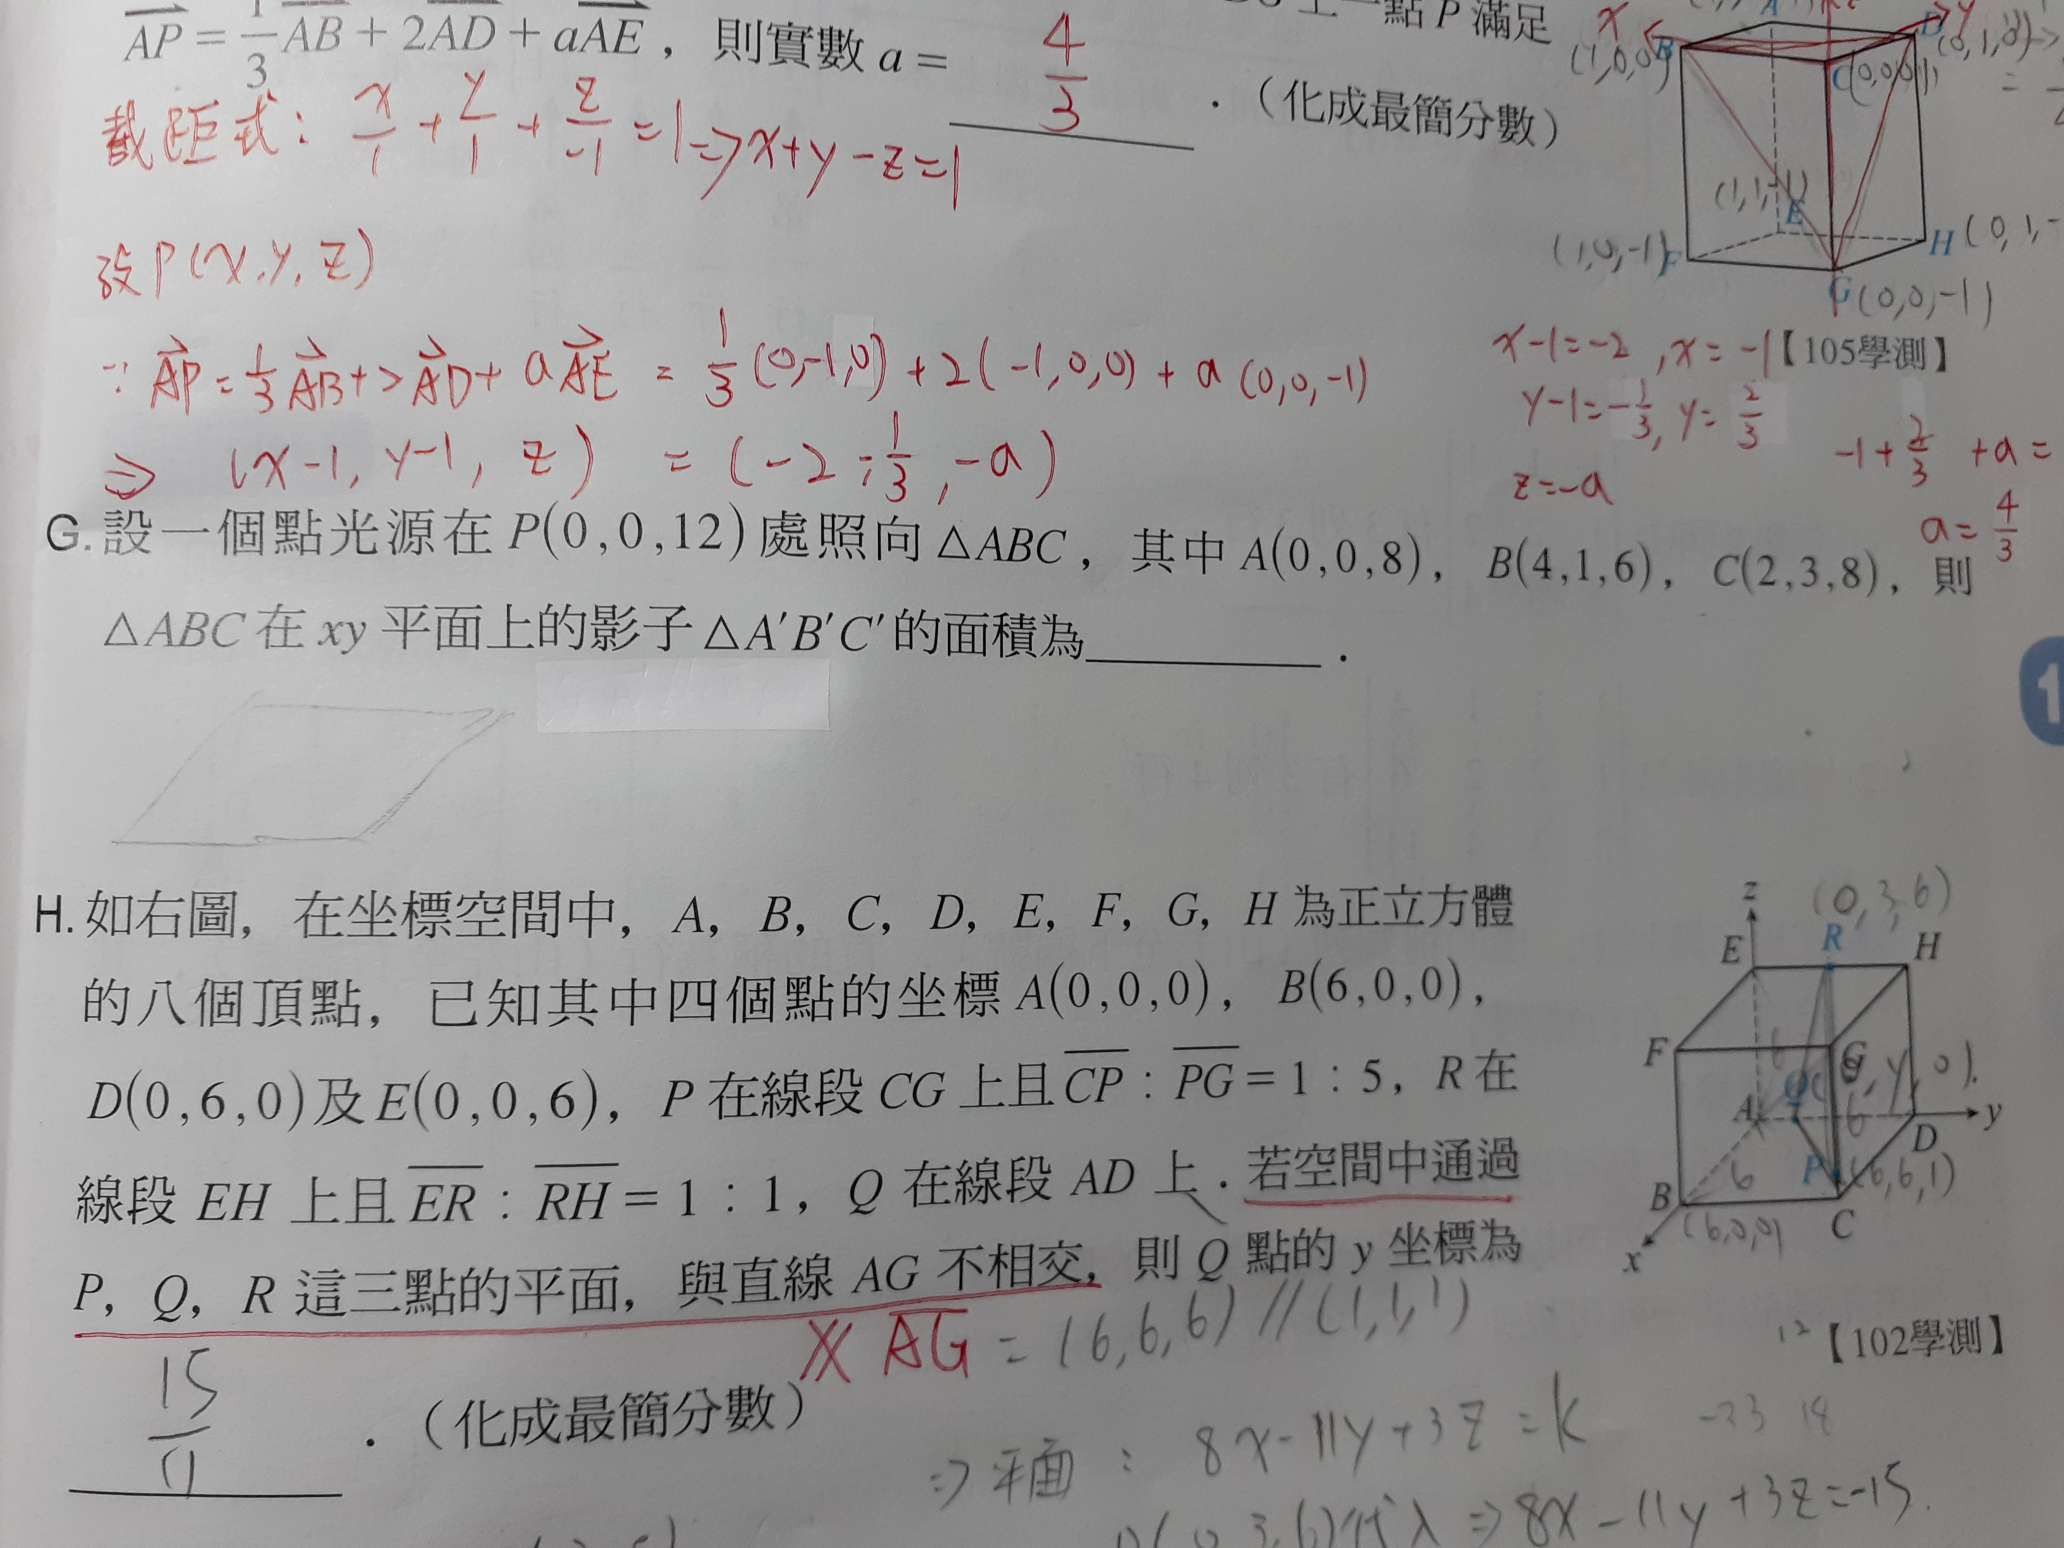 上一點 P 滿足
AP = 1/3 AB + 2AD + aAE，則實數 a = 4/3 .（化成最簡分數）
截距式：x/1 + y/1 + z/-1 = 1 => x+y-z=1
設P(x,y,z)
∵ AP = 1/3 AB + 2AD + aAE = 1/3 (0,-1,0) + 2(-1,0,0) + a(0,0,-1)
=> (x-1, y-1, z) = (-2, -1/3, -a)
x
A
y
B
(1,0,0)
D
(0,1,0)
C(0,0,0)
(1,1,-1)
E
(1,0,-1)F
H(0,1,-
G(0,0,-1)
x-1=-2, x=-1【105學測】
y-1=-1/3, y=2/3
z=-a
-1+2/3+a=
a=4/3
G.設一個點光源在 P(0,0,12) 處照向 △ABC，其中 A(0,0,8)，B(4,1,6)，C(2,3,8)，則
△ABC 在 xy 平面上的影子 △A'B'C' 的面積為 .
1
H.如右圖，在坐標空間中，A，B，C，D，E，F，G，H 為正立方體
的八個頂點，已知其中四個點的坐標 A(0,0,0)，B(6,0,0)，
D(0,6,0) 及 E(0,0,6)，P 在線段 CG 上且 CP : PG = 1 : 5，R 在
線段 EH 上且 ER : RH = 1 : 1，Q 在線段 AD 上．若空間中通過
P，Q，R 這三點的平面，與直線 AG 不相交，則 Q 點的 y 坐標為
15/11 .（化成最簡分數）
z
(0,3,6)
E
R
H
F
G
6
Q
,y,0)
A
6
y
D
P
(6,6,1)
B
6
(6,0,0)
C
x
【102學測】
AG = (6,6,6) // (1,1,1)
=> 平面： 8x-11y+3z=k
-33 18
(0,3,6)代入 => 8x-11y+3z=-15.